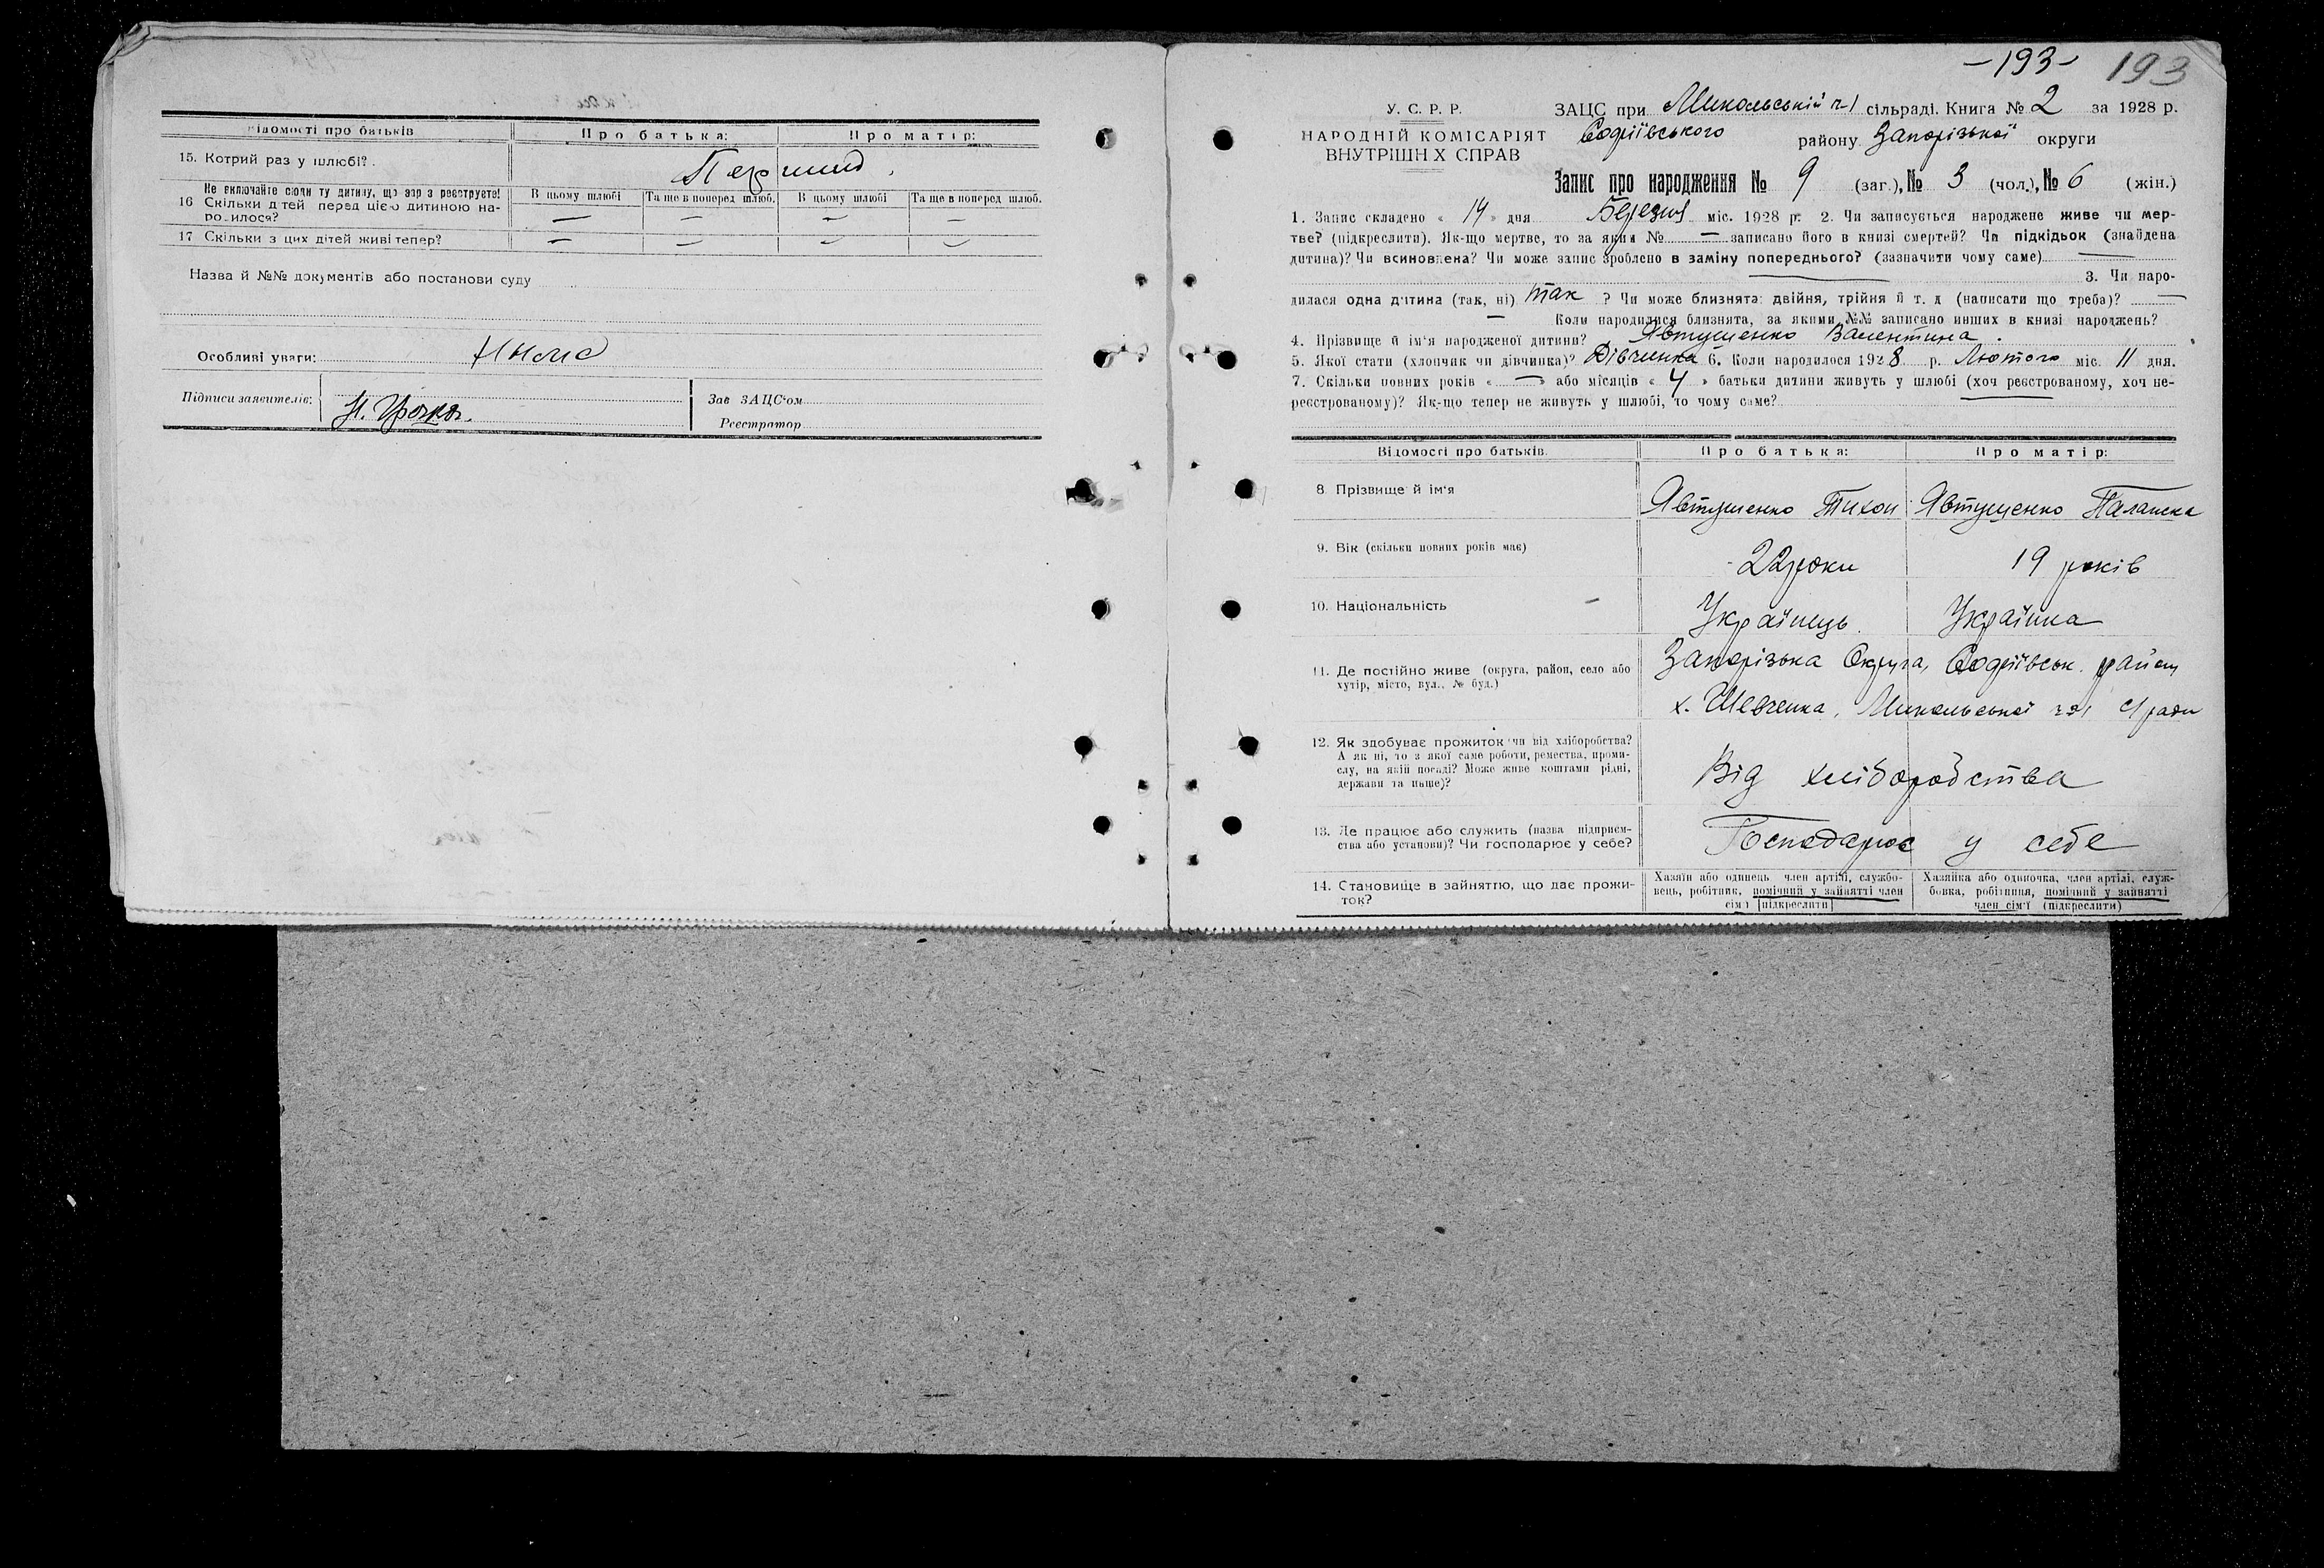 Відомості про батьків
Про батька:
Про матір:
15. Котрий раз у шлюбі?
Перший
Не включайте сюди ту дитину, що зар з реєструєте!
16 Скільки дітей перед цією дитиною на-
родилося?
В цьому шлюбі
Та ще в поперед шлюб.
В цьому шлюбі
Та ще в поперед шлюб.
— — — —
17 Скільки з цих дітей живі тепер?
— — — —
Назва й №№ документів або постанови суду
Особливі уваги:
Підписи заявителів:
Зав ЗАЦС'ом
Реєстратор
-193- 193
У. С. Р. Р.
НАРОДНІЙ КОМІСАРІЯТ
ВНУТРІШНІХ СПРАВ
ЗАЦС при Микольській ч 1 сільраді. Книга № 2 за 1928 р.
Софіївського району Запорізької округи
Запис про народження № 9 (заг.), № 3 (чол.), № 6 (жін.)
1. Запис складено « 14 » дня Березня міс. 1928 р. 2. Чи записується народжене живе чи мер-
тве? (підкреслити). Як-що мертве, то за яким № — записано його в книзі смертей? Чи підкідьок (знайдена
дитина)? Чи всиновлена? Чи може запис зроблено в заміну попереднього? (зазначити чому саме) —
3. Чи наро-
дилася одна дитина (так, ні) так ? Чи може близнята: двійня, трійня й т. д (написати що треба)? —
— Коли народилися близнята, за якими №№ записано инших в книзі народжень?
4. Прізвище й ім'я народженої дитини? Явтушенко Валентина.
5. Якої стати (хлопчик чи дівчинка)? Дівчинка 6. Коли народилося 1928 р. Лютого міс. 11 дня.
7. Скільки повних років « — » або місяців « 4 » батьки дитини живуть у шлюбі (хоч реєстрованому, хоч не-
реєстрованому)? Як-що тепер не живуть у шлюбі, то чому саме?
Відомості про батьків.
Про батька:
Про матір:
8. Прізвище й ім'я
Явтушенко Тихон
Явтушенко Палажка
9. Вік (скільки повних років має)
22 роки
19 років
10. Національність
Українець
Українка
11. Де постійно живе (округа, район, село або
хутір, місто, вул., № буд.)
Запорізька Округа, Софіївськ. район
х. Шевченка, Микольської ч 1 с/ради
12. Як здобуває прожиток чи від хліборобства?
А як ні, то з якої саме роботи, ремества, проми-
слу, на якій посаді? Може живе коштами рідні,
держави та инше)?
Від хліборобства
13. Де працює або служить (назва підприєм-
ства або установи)? Чи господарює у себе?
Господарює у себе
14. Становище в зайняттю, що дає прожи-
ток?
Хазяїн або одинець член артілі, службо-
вець, робітник, помічний у зайнятті член
сім'ї (підкреслити)
Хазяйка або одиночка, член артілі, служ-
бовка, робітниця, помічний у зайнятті
член сім'ї (підкреслити)